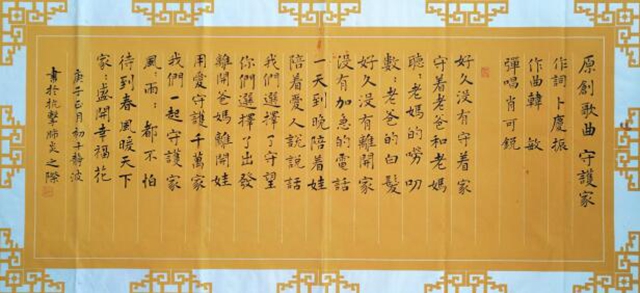 原創歌曲 守護家
作詞卜慶振
作曲韓 敏
彈唱肖可銳
好久没有守着家
守着老爸和老媽
聽:老媽的嘮叨
數:老爸的白髮
好久没有離開家
没有加急的電話
一天到晚陪着娃
陪着愛人説説話
我們選擇了守望
你們選擇了出發
離開爸媽離開娃
用愛守護千萬家
我們一起守護家
風:雨:都不怕
待到春風暖天下
家:盛開幸福花
庚子正月初十静波
書於抗擊肺炎之際